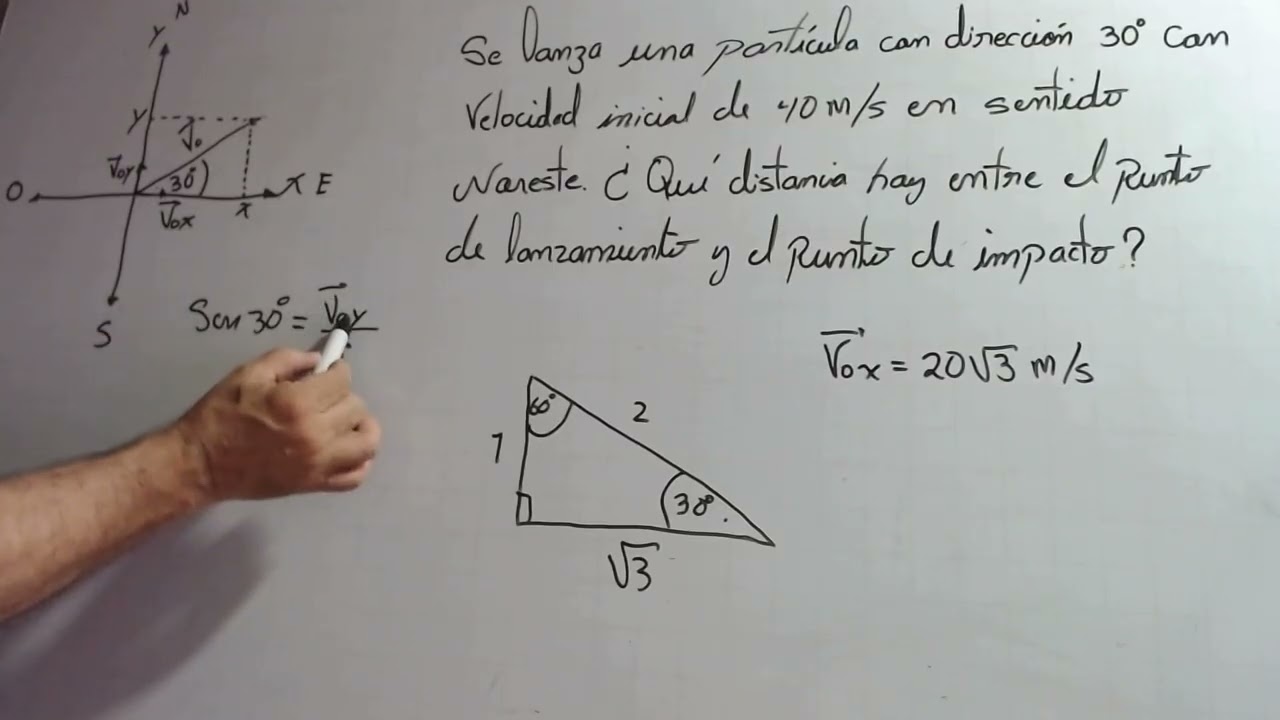 N
Y
Y
V₀
V₀y
30°
O
X E
V₀x
x
S
Se lanza una partícula con dirección 30° con
Velocidad inicial de 40 m/s en sentido
Noreste. ¿ Qué distancia hay entre el punto
de lanzamiento y el punto de impacto?
Sen 30° = V₀y
V₀x = 20√3 m/s
60°
2
1
30°
√3